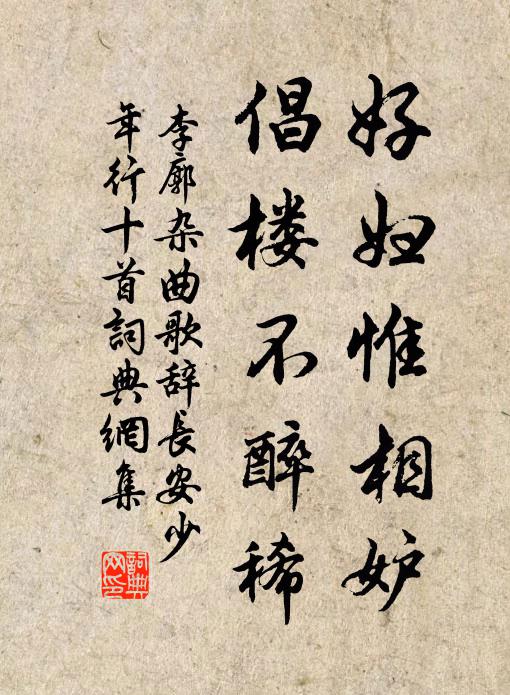 好妇惟相妒
倡楼不醉稀
李廓杂曲歌辞長安少
年行十首詞典網集
詞典
网印